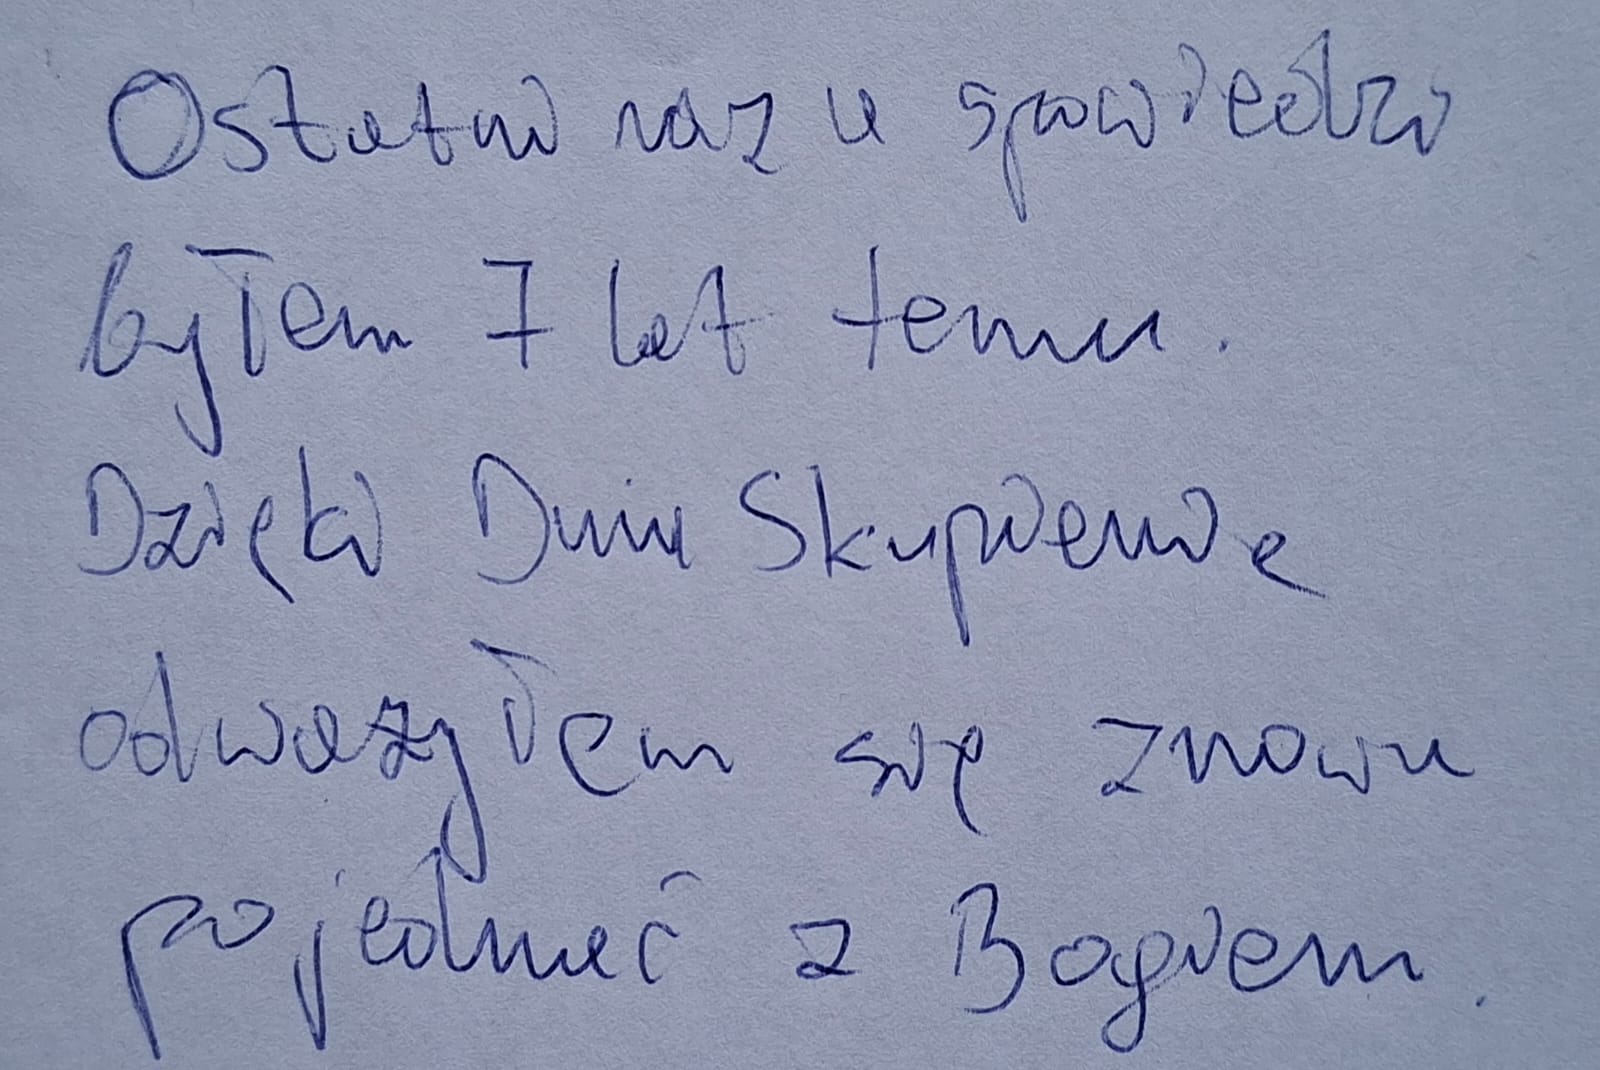 Ostatni raz u spowiedzi
byłem 7 lat temu.
Dzięki Dniu Skupienia
odważyłem się znowu
pojednać z Bogiem.